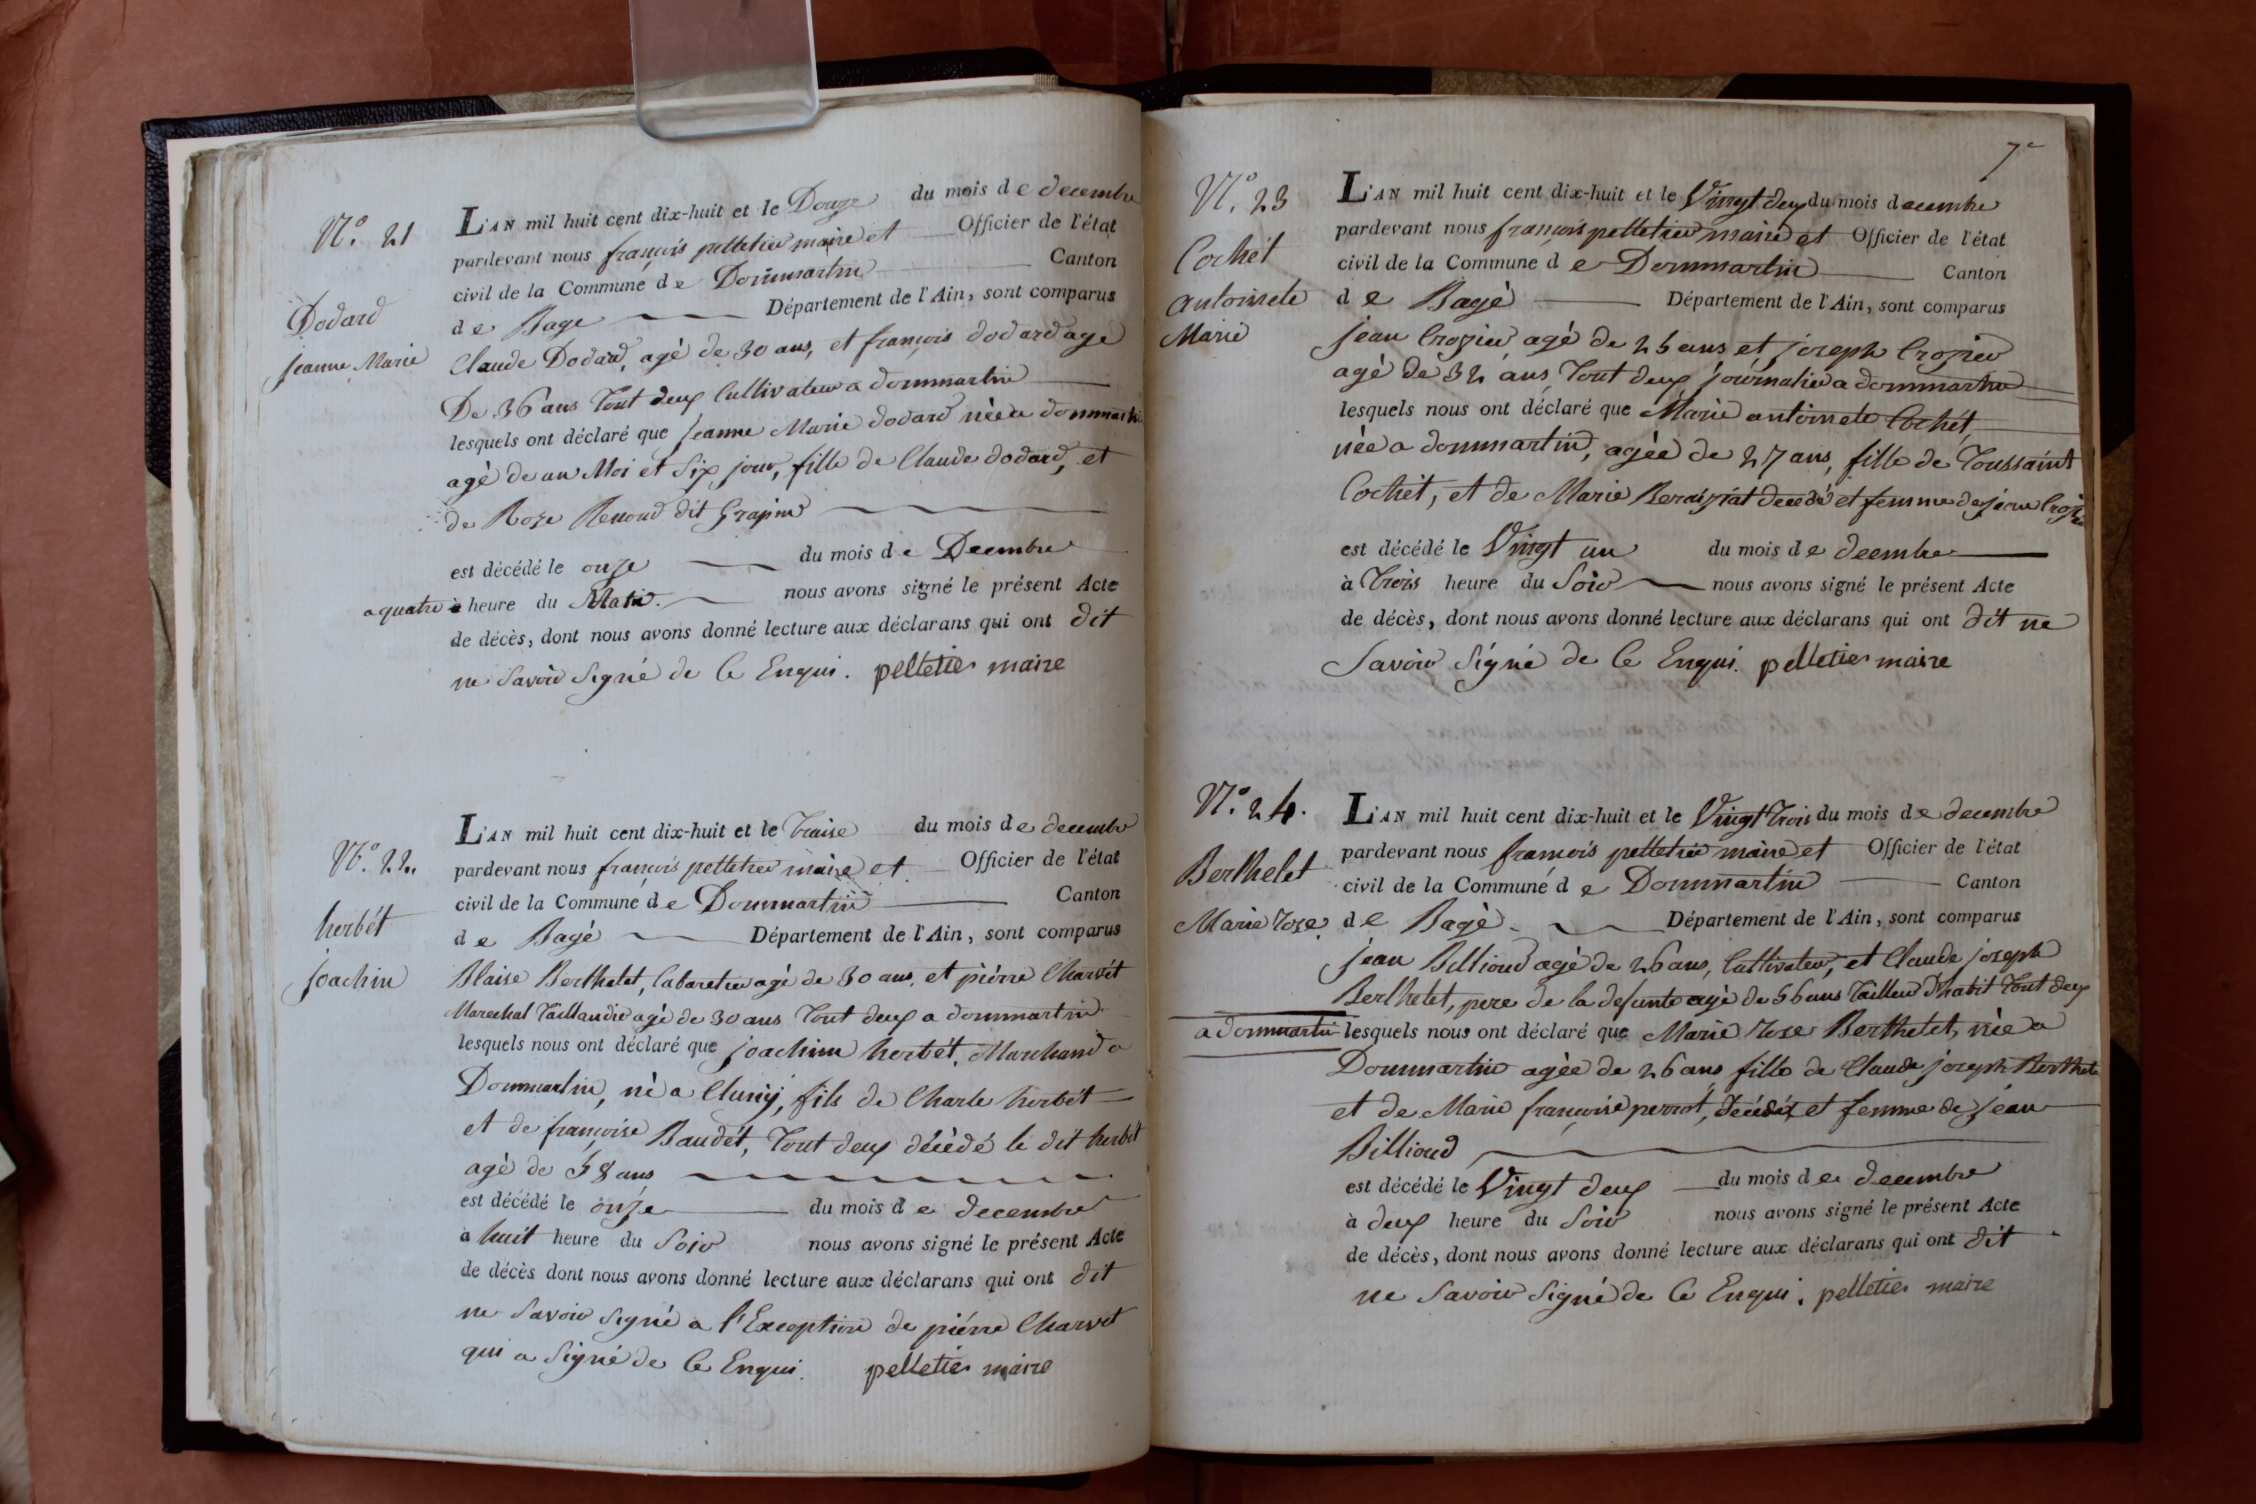 N.o 21
Dodard
jeanne Marie
L'AN mil huit cent dix-huit et le Douze du mois de decembre
pardevant nous françois pelletier maire et Officier de l'état
civil de la Commune de Dommartin Canton
de Bage Département de l'Ain, sont comparus
Claude Dodard, agé de 30 ans, et françois dodard agé
De 36 ans Tout deux Cultivateur a dommartin
lesquels ont déclaré que jeanne Marie dodard née a dommartin
agé de un Moi et Six jour, fille de Claude dodard, et
de Roze Renoud dit Grapin
est décédé le onze du mois de Decembre
a quatre à heure du Matin. nous avons signé le présent Acte
de décès, dont nous avons donné lecture aux déclarans qui ont dit
ne Savoir Signé de Ce Enqui. pelletier maire
N.o 22.
herbét
joachin
L'AN mil huit cent dix-huit et le Traise du mois de decembre
pardevant nous françois pelletier maire et Officier de l'état
civil de la Commune de Dommartin Canton
de Bagé Département de l'Ain, sont comparus
Blaise Berthelet, Cabaretier agé de 30 ans, et piérre Charvét
Marechal Taillandier agé de 30 ans Tout deux a dommartin
lesquels nous ont déclaré que joachim herbét, Marchand a
Dommartin, né a Cluny, fils de Charle herbét
et de françoise Baudét, Tout deux décédé le dit herbét
agé de 58 ans
est décédé le onze du mois de decembre
à huit heure du Soir nous avons signé le présent Acte
de décès dont nous avons donné lecture aux déclarans qui ont dit
ne Savoir Signé a l'Exception de piérre Charvet
qui a Signé de Ce Enqui. pelletier maire
7e
N.o 23
Cochét
antoinete
Marie
L'AN mil huit cent dix-huit et le Vingt deux du mois decembre
pardevant nous françois pelletier maire et Officier de l'état
civil de la Commune de Dommartin Canton
de Bagé Département de l'Ain, sont comparus
jean Crozier agé de 25 ans et joseph Crozier
agé de 32 ans Tout deux journalier a dommartin
lesquels nous ont déclaré que Marie antoinete Cochét
née a dommartin, agée de 27 ans, fille de Toussaint
Cochét, et de Marie decédé et femme de jean Crozier
est décédé le Vingt un du mois de decembre
à Trois heure du Soir nous avons signé le présent Acte
de décès, dont nous avons donné lecture aux déclarans qui ont dit ne
Savoir Signé de Ce Enqui. pelletier maire
N.o 24.
Berthelet
Marie roze
L'AN mil huit cent dix-huit et le Vingt Trois du mois de decembre
pardevant nous francois pelletier maire et Officier de l'état
civil de la Commune de Dommartin Canton
de Bagé Département de l'Ain, sont comparus
jean Billioud agé de 26 ans, Cultivateur, et Claude joseph
Berthelet, pere de la defunte agé de 56 ans Tailleur D'habit Tout deux
a dommartin lesquels nous ont déclaré que Marie roze Berthelet, née a
Dommartin agée de 26 ans fille de Claude joseph Berthelet
et de Marie françoise perrot, décédé et femme de jean
Billioud
est décédé le Vingt deux du mois de decembre
à deux heure du Soir nous avons signé le présent Acte
de décès, dont nous avons donné lecture aux déclarans qui ont dit
ne Savoir Signé de Ce Enqui. pelletier maire